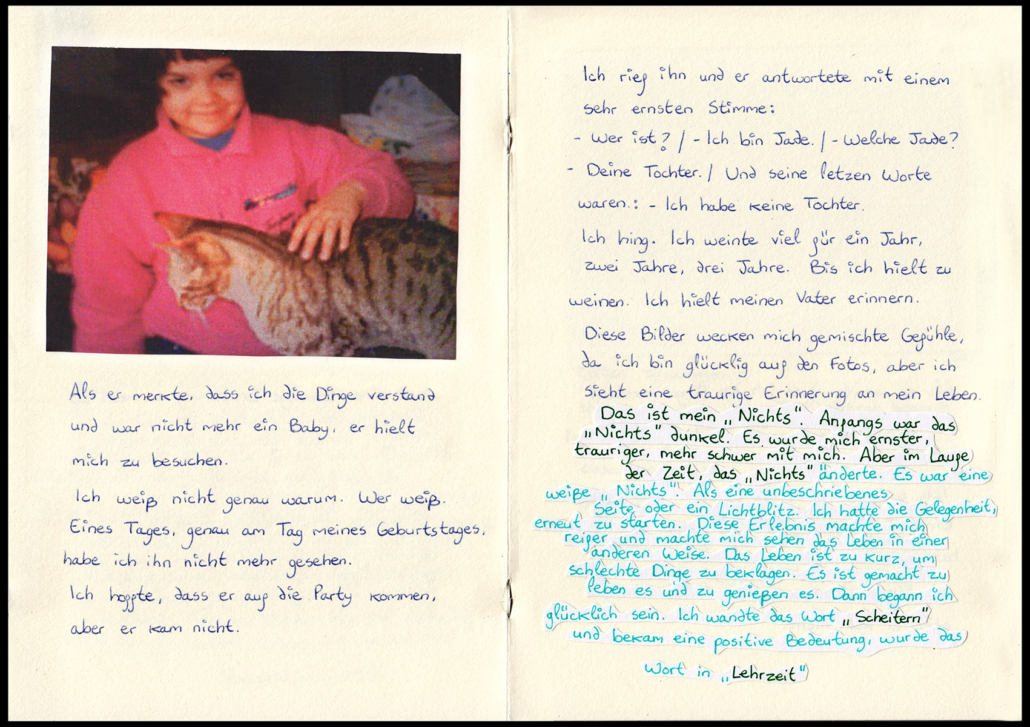 Als er merkte, dass ich die Dinge verstand
und war nicht mehr ein Baby, er hielt
mich zu besuchen.
Ich weiß nicht genau warum. Wer weiß.
Eines Tages, genau am Tag meines Geburtstages,
habe ich ihn nicht mehr gesehen.
Ich hoffte, dass er auf die Party kommen,
aber er kam nicht.
Ich rief ihn und er antwortete mit einem
sehr ernsten Stimme:
- Wer ist? / - Ich bin Jade. / - Welche Jade?
- Deine Tochter. / Und seine letzen Worte
waren.: - Ich habe keine Tochter.
Ich hing. Ich weinte viel für ein Jahr,
zwei Jahre, drei Jahre. Bis ich hielt zu
weinen. Ich hielt meinen Vater erinnern.
Diese Bilder wecken mich gemischte Gefühle,
da ich bin glücklig auf den Fotos, aber ich
sieht eine traurige Erinnerung an mein Leben.
Das ist mein „Nichts". Anfangs war das
„Nichts" dunkel. Es wurde mich ernster,
trauriger, mehr schwer mit mich. Aber im Laufe
der Zeit, das „Nichts" änderte. Es war eine
weiße „Nichts". Als eine unbeschriebenes
Seite oder ein Lichtblitz. Ich hatte die Gelegenheit,
erneut zu starten. Diese Erlebnis machte mich
reifer und machte mich sehen das Leben in einer
anderen Weise. Das Leben ist zu kurz, um
schlechte Dinge zu beklagen. Es ist gemacht zu
leben es und zu genießen es. Dann begann ich
glücklich sein. Ich wandte das Wort „Scheitern"
und bekam eine positive Bedeutung, wurde das
Wort in „Lehrzeit"